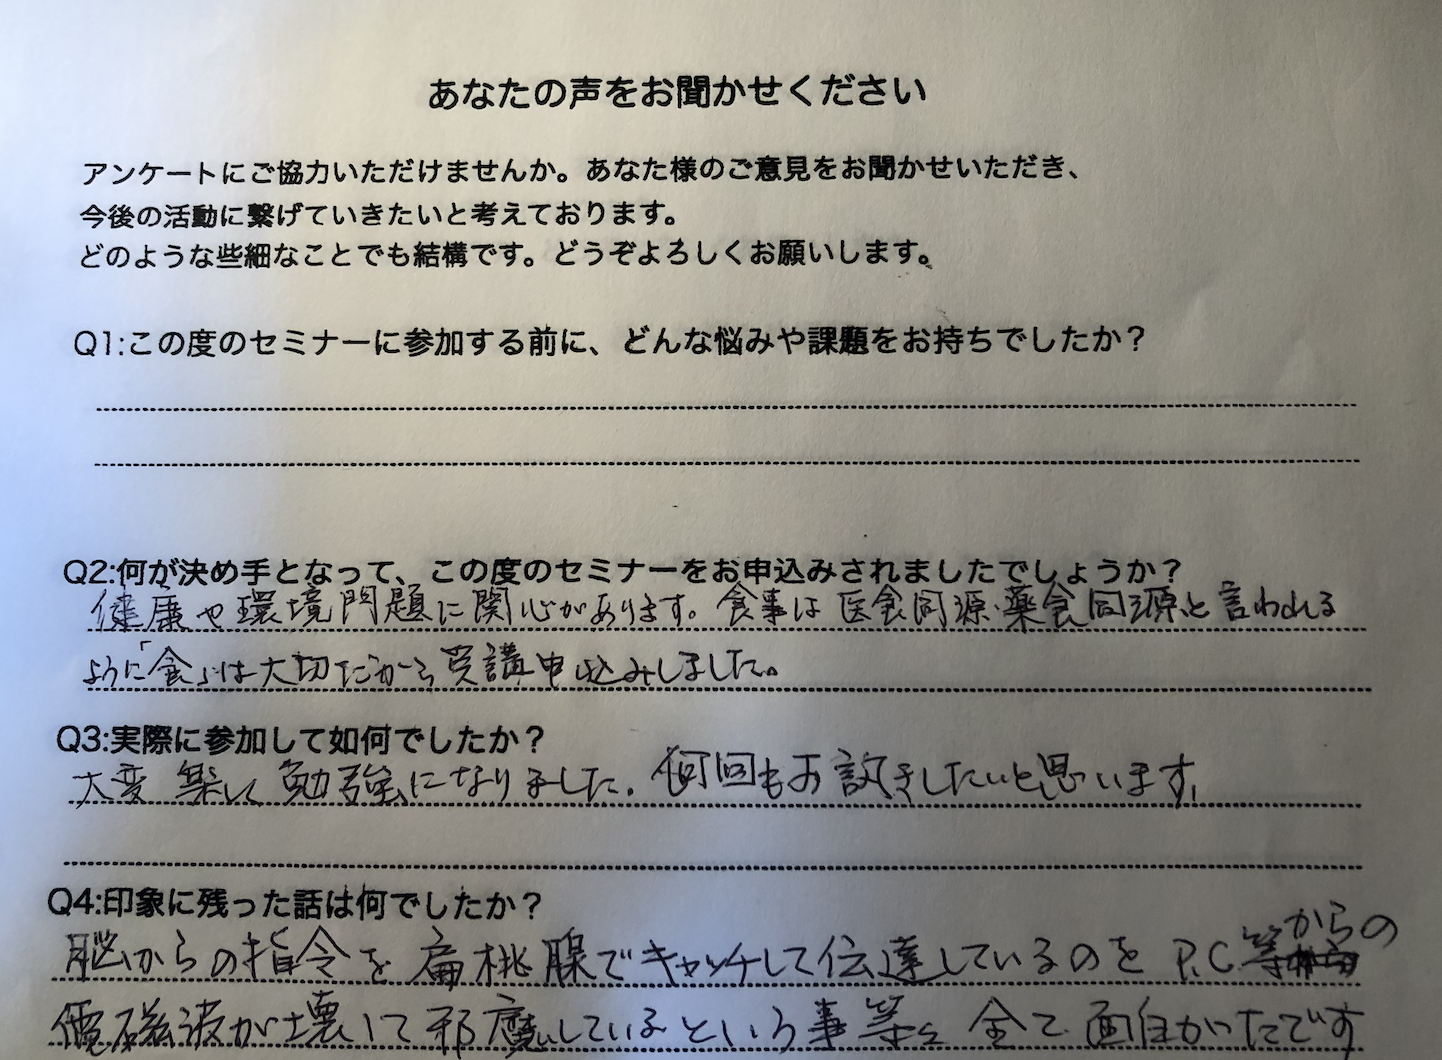 あなたの声をお聞かせください
アンケートにご協力いただけませんか。あなた様のご意見をお聞かせいただき、
今後の活動に繋げていきたいと考えております。
どのような些細なことでも結構です。どうぞよろしくお願いします。
Q1:この度のセミナーに参加する前に、どんな悩みや課題をお持ちでしたか？
Q2:何が決め手となって、この度のセミナーをお申込みされましたでしょうか？
健康や環境問題に関心があります。食事は医食同源、薬食同源と言われる
ように「食」は大切だから受講申込みしました。
Q3:実際に参加して如何でしたか？
大変楽しく勉強になりました。何回もお話をきしたいと思います。
Q4:印象に残った話は何でしたか？
脳からの指令を扁桃腺でキャッチして伝達しているのをP.C等からの
電磁波が壊して邪魔しているという事等々全て面白かったです